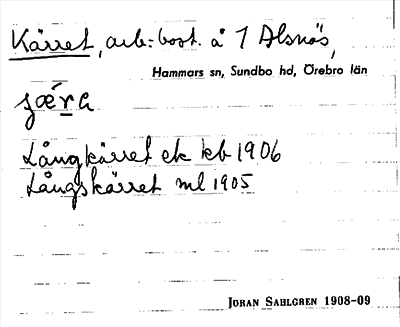 Kärret, arb:bost. å 7 Alsnäs,
Hammars sn, Sundbo hd, Örebro län
Långkärret ek kb 1906
Långskärret ml 1905
JÖRAN SAHLGREN 1908-09